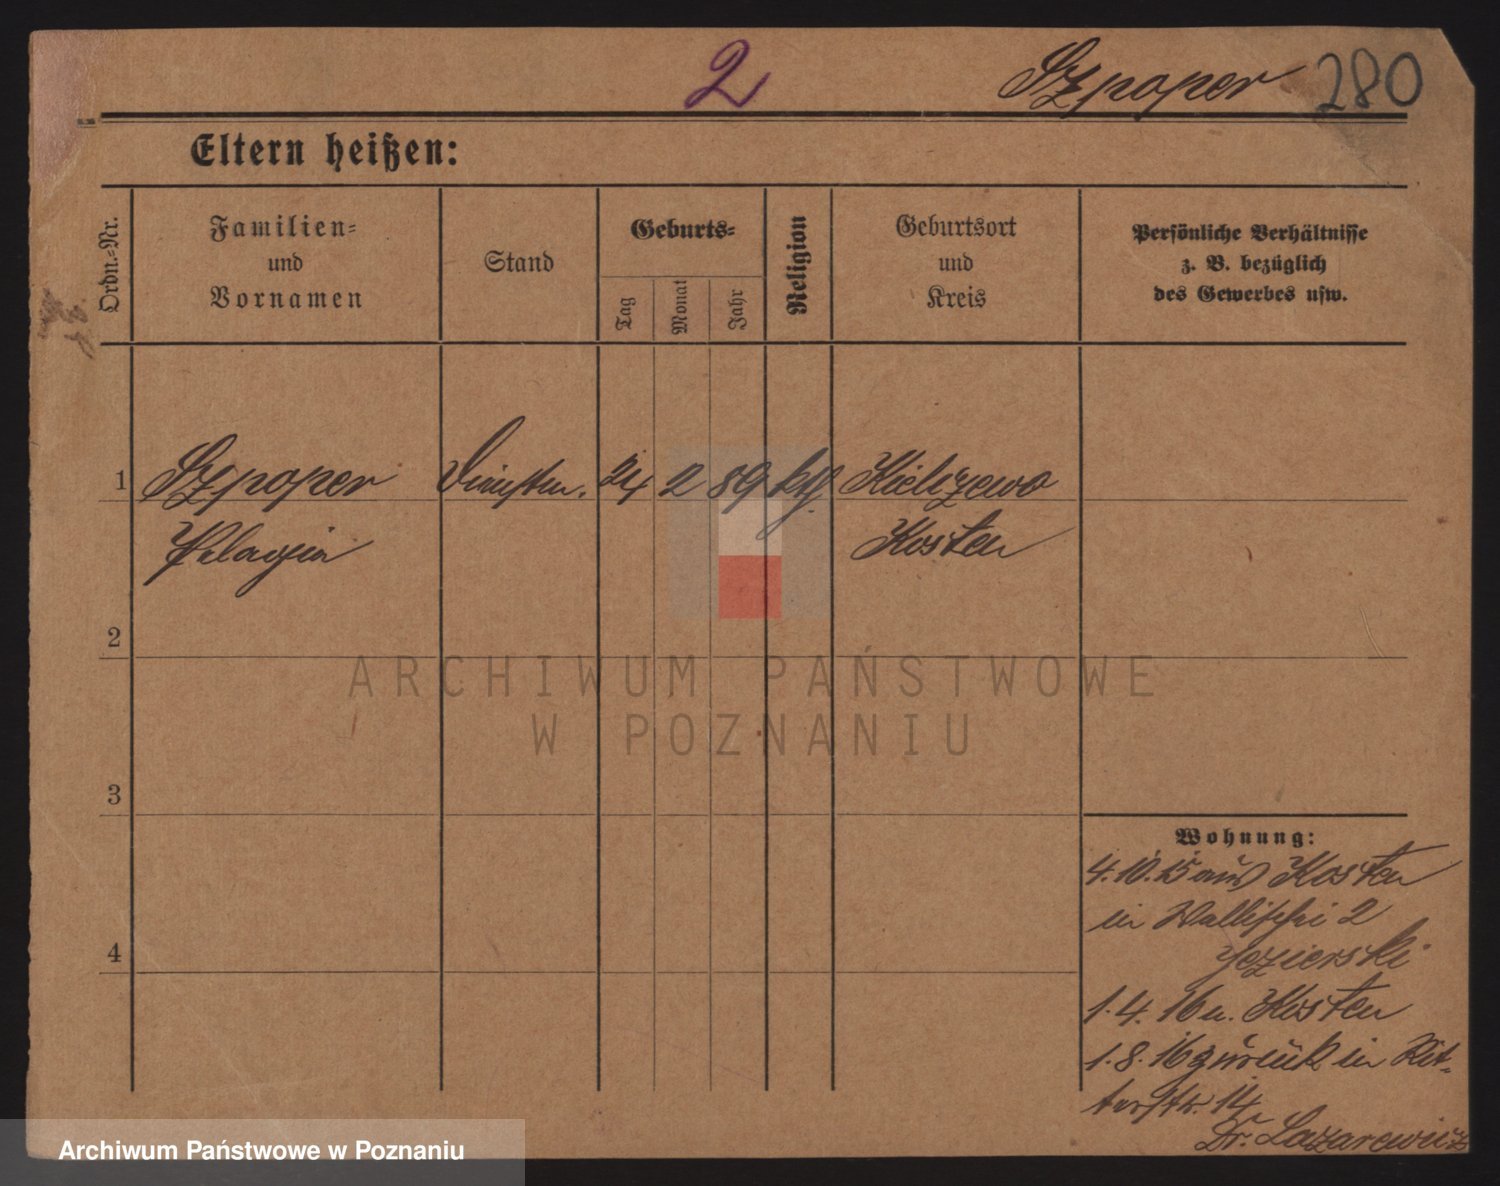 2
Szpoper 280
Eltern heißen:
Ordn.-Nr.
Familien-
und
Vornamen
Stand
Geburts-
Tag
Monat
Jahr
Religion
Geburtsort
und
Kreis
Persönliche Verhältnisse
z. B. bezüglich
des Gewerbes usw.
1 Szpoper Dienstm. 24 2 89 kth. Kielczewo
Pelagia Kosten
2
3
4
Wohnung:
4.10.15 aus Kosten
in Wallischei 2
Jezierski
1.4.16 n. Kosten
1.8.16 zurück in Rit-
terstr. 14
Dr. Lazarewicz
ARCHIWUM PAŃSTWOWE
W POZNANIU
Archiwum Państwowe w Poznaniu